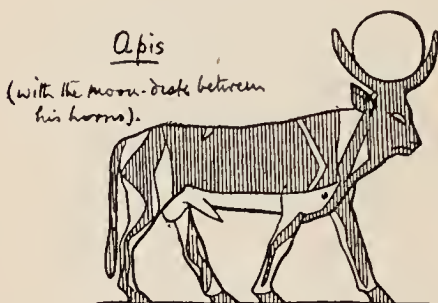 Apis
(with the moon-disk between
his horns).